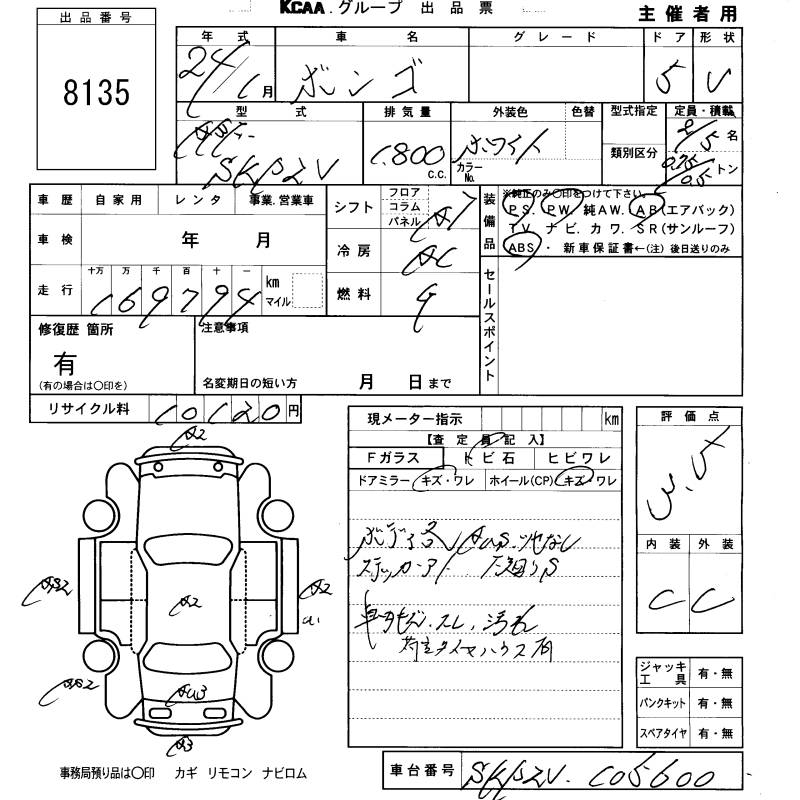 KCAA.グループ 出品票
主催者用
出品番号
8135
年式 車名 グレード ドア 形状
24/1月 ボンゴ 5 V
型式 排気量 外装色 色替 型式指定 定員・積載
SKP2V 1,800 c.c. ホワイト カラーNo. 類別区分 2/5名
0.75/0.5トン
車歴 自家用 レンタ 事業.営業車
車検 年 月
走行 十万 万 千 百 十 一 km マイル
169794
シフト フロア コラム パネル
冷房 AC
燃料 G
装備品 ※純正のみ○印をつけて下さい。
PS. PW. 純AW. AB(エアバック)
TV. ナビ. カワ. SR(サンルーフ)
ABS. ・ 新車保証書←(注) 後日送りのみ
セールスポイント
修復歴 箇所 注意事項
有
(有の場合は○印を) 名変期日の短い方 月 日まで
リサイクル料 10120円
現メーター指示 km
【査定員記入】
Fガラス トビ石 ヒビワレ
ドアミラー キズ・ワレ ホイール(CP) キズ・ワレ
ステッカーア 下廻りS
スレ、汚れ
評価点
3.5
内装 外装
C C
A2
A2
A2
a1
ジャッキ工具 有・無
パンクキット 有・無
スペアタイヤ 有・無
事務局預り品は○印 カギ リモコン ナビロム
車台番号 SKP2V-105600